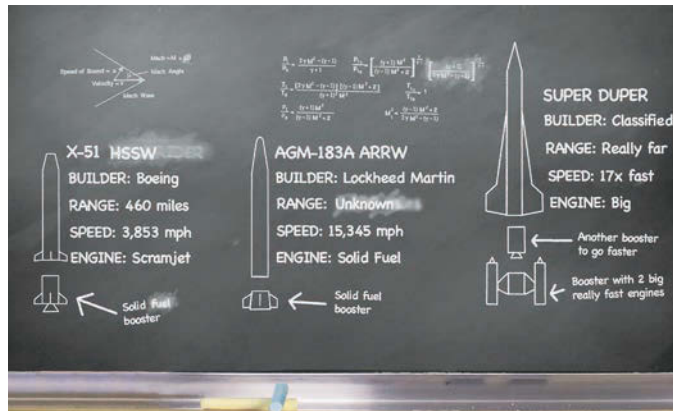 Mach
Speed of Sound = a
Mach Angle
Velocity = V
Mach Wave
X-51 HSSW
BUILDER: Boeing
RANGE: 460 miles
SPEED: 3,853 mph
ENGINE: Scramjet
Solid fuel
booster
AGM-183A ARRW
BUILDER: Lockheed Martin
RANGE: Unknown
SPEED: 15,345 mph
ENGINE: Solid Fuel
Solid fuel
booster
SUPER DUPER
BUILDER: Classified
RANGE: Really far
SPEED: 17x fast
ENGINE: Big
Another booster
to go faster
Booster with 2 big
really fast engines